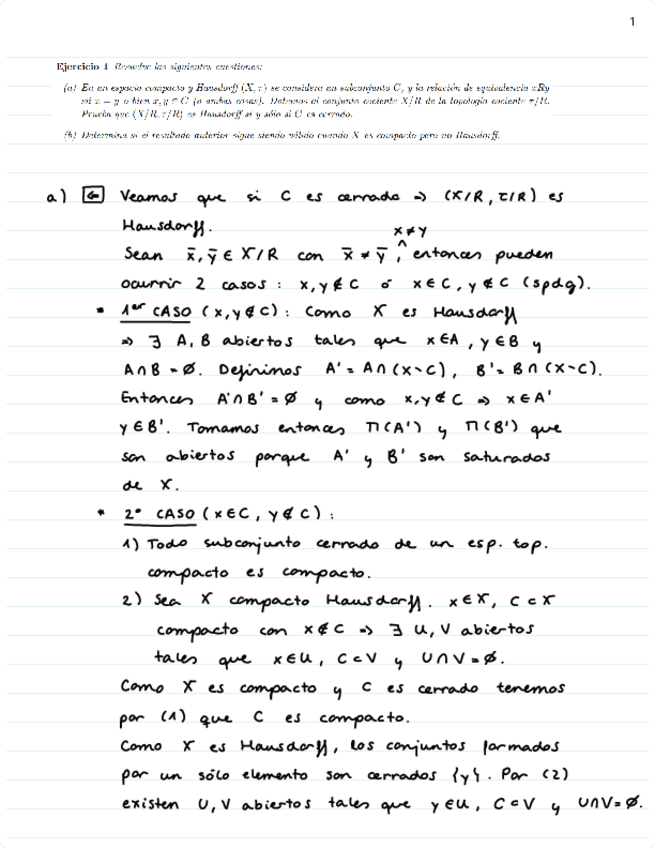 1
Ejercicio 1 Resuelve las siguientes cuestiones:
(a) En un espacio compacto y Hausdorff (X, τ) se considera un subconjunto C, y la relación de equivalencia xRy
si x = y o bien x, y ∈ C (o ambas cosas). Dotemos al conjunto cociente X/R de la topología cociente τ/R.
Prueba que (X/R, τ/R) es Hausdorff si y sólo si C es cerrado.
(b) Determina si el resultado anterior sigue siendo válido cuando X es compacto pero no Hausdorff.
a) ⇐ Veamos que si C es cerrado ⇒ (X/R, τ/R) es
Hausdorff.
x≠y
Sean x̄, ȳ ∈ X/R con x̄ ≠ ȳ, ^ entonces pueden
ocurrir 2 casos : x, y ∉ C ó x ∈ C, y ∉ C (spdg).
• 1er CASO (x, y ∉ C) : Como X es Hausdorff
⇒ ∃ A, B abiertos tales que x∈A, y∈B y
A∩B = ∅. Definimos A' = A∩(X∖C), B' = B∩(X∖C).
Entonces A'∩B' = ∅ y como x,y ∉ C ⇒ x ∈ A'
y ∈ B'. Tomamos entonces Π(A') y Π(B') que
son abiertos porque A' y B' son saturados
de X.
• 2º CASO (x ∈ C, y ∉ C) :
1) Todo subconjunto cerrado de un esp. top.
compacto es compacto.
2) Sea X compacto Hausdorff. x ∈ X, C ⊂ X
compacto con x ∉ C ⇒ ∃ U, V abiertos
tales que x∈U, C⊂V y U∩V = ∅.
Como X es compacto y C es cerrado tenemos
por (1) que C es compacto.
Como X es Hausdorff, los conjuntos formados
por un sólo elemento son cerrados {y}. Por (2)
existen U, V abiertos tales que y∈U, C⊂V y U∩V = ∅.